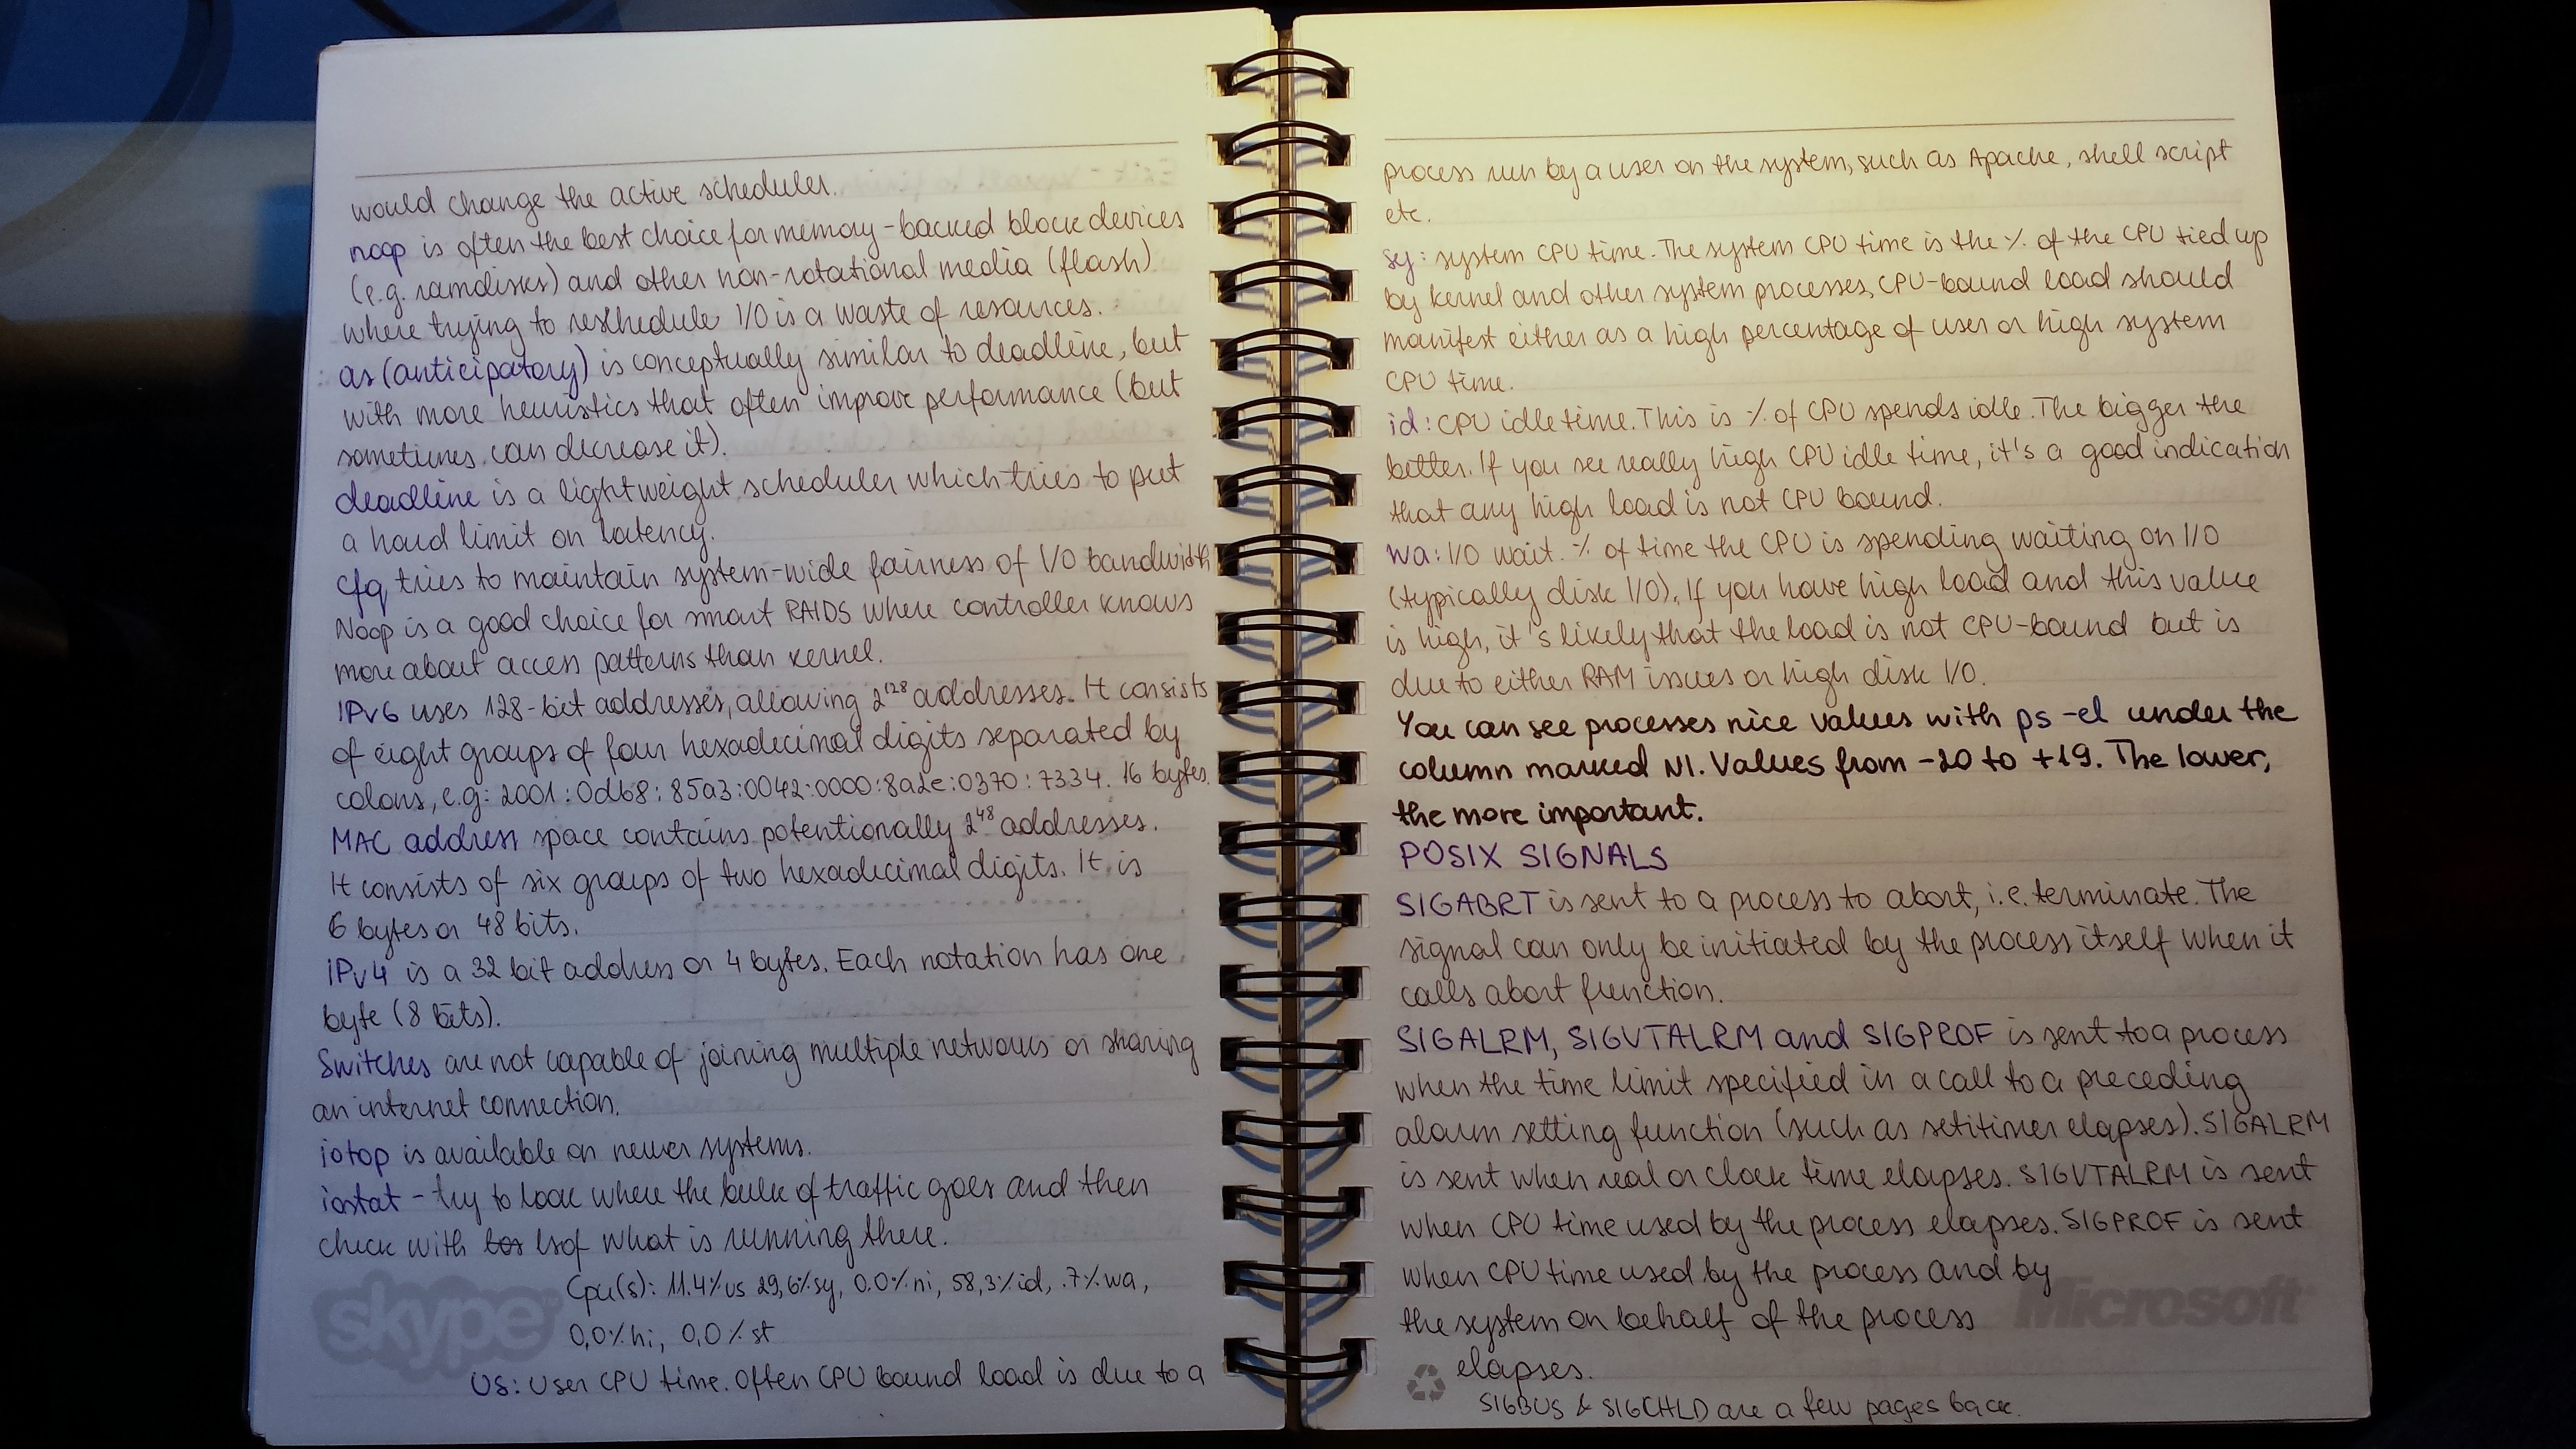 would change the active scheduler.
noop is often the best choice for memory-backed block devices
(e.g. ramdisks) and other non-rotational media (flash)
where trying to reschedule I/O is a waste of resources.
as (anticipatory) is conceptually similar to deadline, but
with more heuristics that often improve performance (but
sometimes can decrease it).
deadline is a lightweight scheduler which tries to put
a hard limit on latency.
cfq tries to maintain system-wide fairness of I/O bandwidth
Noop is a good choice for smart RAIDS where controller knows
more about access patterns than kernel.
IPv6 uses 128-bit addresses, allowing 2^128 addresses. It consists
of eight groups of four hexadecimal digits separated by
colons, e.g: 2001:0db8:85a3:0042:0000:8a2e:0370:7334. 16 bytes.
MAC address space contains potentionally 2^48 addresses.
It consists of six groups of two hexadecimal digits. It is
6 bytes or 48 bits.
IPv4 is a 32 bit address or 4 bytes. Each notation has one
byte (8 bits).
Switches are not capable of joining multiple networks or sharing
an internet connection.
iotop is available on newer systems.
iostat - try to look where the bulk of traffic goes and then
check with lsof what is running there.
Cpu(s): 11.4%us 29,6%sy, 0.0%ni, 58,3%id, .7%wa,
0,0%hi, 0,0%st
skype
US: User CPU time. Often CPU bound load is due to a
process run by a user on the system, such as Apache, shell script
etc.
sy: system CPU time. The system CPU time is the % of the CPU tied up
by kernel and other system processes, CPU-bound load should
manifest either as a high percentage of user or high system
CPU time.
id: CPU idle time. This is % of CPU spends idle. The bigger the
better. If you see really high CPU idle time, it's a good indication
that any high load is not CPU bound.
wa: I/O wait. % of time the CPU is spending waiting on I/O
(typically disk I/O). If you have high load and this value
is high, it's likely that the load is not CPU-bound but is
due to either RAM issues or high disk I/O.
You can see processes nice values with ps -el under the
column marked NI. Values from -20 to +19. The lower,
the more important.
POSIX SIGNALS
SIGABRT is sent to a process to abort, i.e. terminate. The
signal can only be initiated by the process itself when it
calls abort function.
SIGALRM, SIGVTALRM and SIGPROF is sent to a process
when the time limit specified in a call to a preceding
alarm setting function (such as setitimer elapses). SIGALRM
is sent when real or clock time elapses. SIGVTALRM is sent
when CPU time used by the process elapses. SIGPROF is sent
when CPU time used by the process and by
the system on behalf of the process
Microsoft
elapses.
SIGBUS & SIGCHLD are a few pages back.